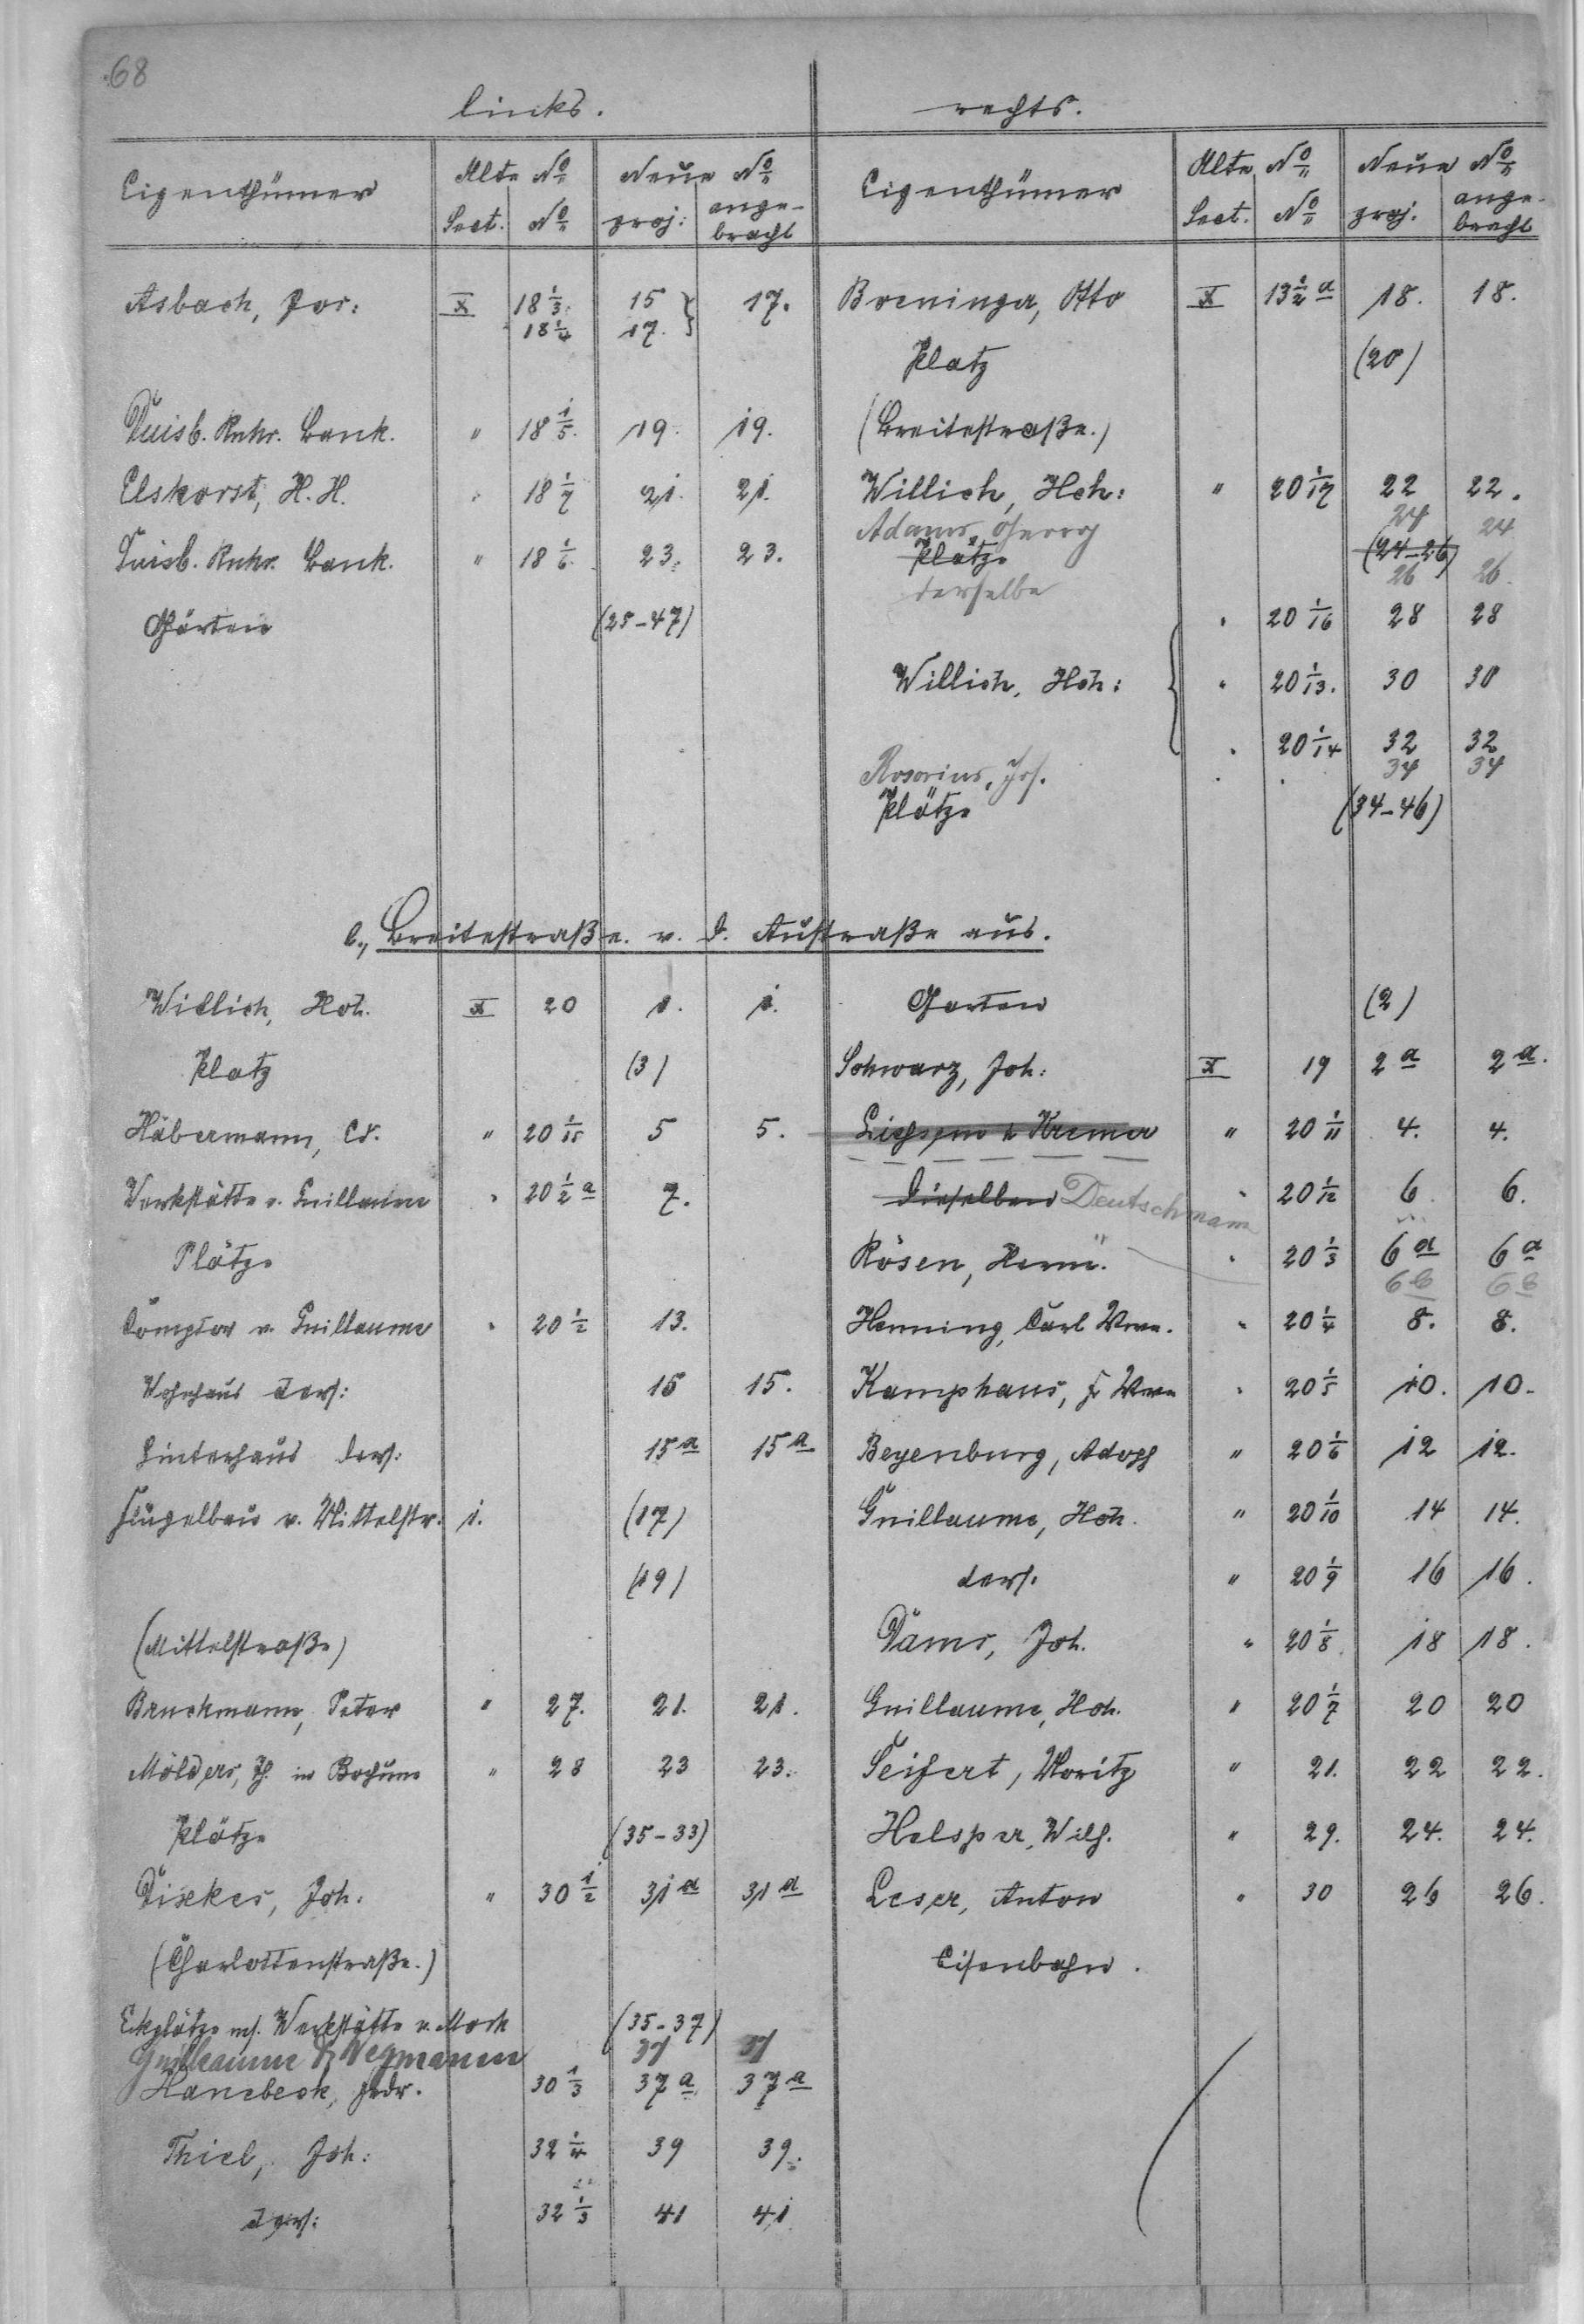 68
links. rechts.
Eigenthümer Alte No Neue No Eigenthümer Alte No Neue No
Sect. No proj: ange-bracht Sect. No proj. ange-bracht
Asbach, Jos: X 18 1/3 15 } 17. Breninger, Otto X 13 1/2 a 18. 18.
18 1/4 17.
Platz (20)
Duisb. Ruhr. Bank. " 18 1/5. 19. 19. (Breitestraße.)
Elskorst, H. H. " 18 1/7 21. 21. Willich, Hch: " 20 1/17 22 22.
Adams, Georg 24 24
Duisb. Ruhr. Bank. " 18 1/6 23. 23. Plätze (24-26)
derselbe 26 26.
Gärten (25-47) " 20 1/16 28 28
Willich, Hch: { " 20 1/13. 30 30
" 20 1/14 32 32
Rosorius, Jos. " " 34 34
Plätze (34-46)
b., Breitestraße. v. d. Austraße aus.
Willich, Hch. X 20 1. 1. Garten (2)
Platz (3) Schwarz, Joh: X 19 2 a 2 a.
Häbermann, Ed. " 20 1/15 5 5. & Kremer " 20 1/11 4. 4.
Werkstätte v. Guillaume " 20 1/2 a 7. Dieselben Deutschmann " 20 1/12 6. 6.
Plätze Rösen, Herm. " 20 1/3 6 a 6 a
6 b 6 b
Comptor v. Guillaume " 20 1/2 13. Henning, Carl Wwe. " 20 1/4 8. 8.
Wohnhaus ders: 15 15. Kamphaus, Fr Wwe " 20 1/5 10. 10.
Hinterhaus ders: 15 a 15 a Beyenburg, Adolf " 20 1/6 12 12.
Flügelbau v. Mittelstr. 1. (17) Guillaume, Hch. " 20 1/10 14 14.
(19) ders. " 20 1/9 16 16.
(Mittelstraße) Däms, Joh. " 20 1/8 18 18.
Bruckmann, Peter " 27. 21. 21. Guillaume, Hch. " 20 1/7 20 20
Mölders, Th. in Bochum " 28 23 23. Seifert, Moritz " 21. 22 22.
Plätze (35-33) Helsper, Wilh. " 29. 24. 24.
Dickes, Joh. " 30 1/2 31 a 31 a Leser, Anton " 30 26 26.
(Charlottenstraße.) Eisenbahn.
Eckplätze mit Werkstätte v. Mork (35-37)
Guillaume & Wegmann 37 37
Hanebeck, Frdr. 30 1/3 37 a 37 a
Thiel, Joh: 32 1/4 39 39.
ders: 32 1/3 41 41